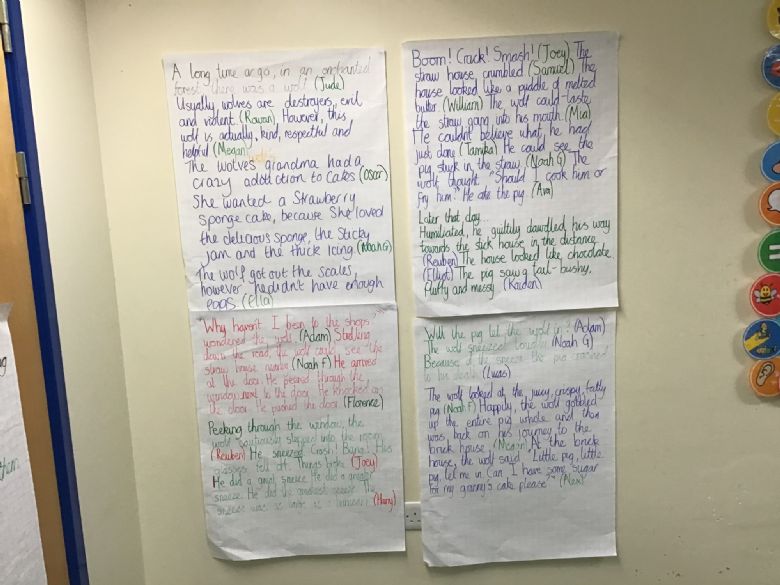 A long time ago, in an enchanted
forest there was a wolf (Jude)
Usually wolves are destroyers, evil
and violent. (Rowan) However, this
wolf is actually, kind, respectful and
helpful (Megan)
The wolves grandma had a
crazy addiction to cakes (Oscar)
She wanted a Strawberry
sponge cake, because She loved
the delicious sponge, the Sticky
jam and the thick Icing. (Noah G)
The wolf got out the scales,
however he didn't have enough
eggs. (Ella)
"Why haven't I been to the shops"
wondered the wolf (Adam)
down the road, the wolf could see the
straw house (Noah F) He arrived
at the door. He peered through the
window next to the door. He knocked on
the door. He pushed the door (Florence)
Peeking through the window, the
wolf cautiously stepped into the room
(Reuben) He sneezed Crash! Bang! His
glasses fell off. Things broke (Joey)
He did a giant sneeze. He did a great
sneeze. He did the greatest sneeze. The
sneeze was as large as a (Harry)
Boom! Crack! Smash! (Joey) The
straw house crumbled (Samuel) The
house looked like a puddle of melted
butter (William) The wolf could taste
the straw going into his mouth. (Mia)
He couldn't believe what he had
just done (Tamika) He could see the
pig stuck in the straw. (Noah G) The
wolf thought "Should I cook him or
fry him." He ate the pig. (Ava)
Later that day...
Humiliated, he guiltily dawdled his way
towards the stick house in the distance
(Reuben) The house looked like, chocolate.
(Elliot) The pig saw a tail-bushy,
fluffy and messy (Kaiden)
Will the pig let the wolf in? (Adam)
The wolf sneezed louder (Noah G)
Because of the sneeze the pig crashed
to his death (Lucas)
The wolf looked at the juicy, crispy, fatty
pig (Noah F) Happily, the wolf gobbled
up the entire pig whole and then
was back on his journey to the
brick house. (Megan) At the brick
house, the wolf said "Little pig, little
pig, let me in Can I have some sugar
for my granny's cake please?" (Alex)